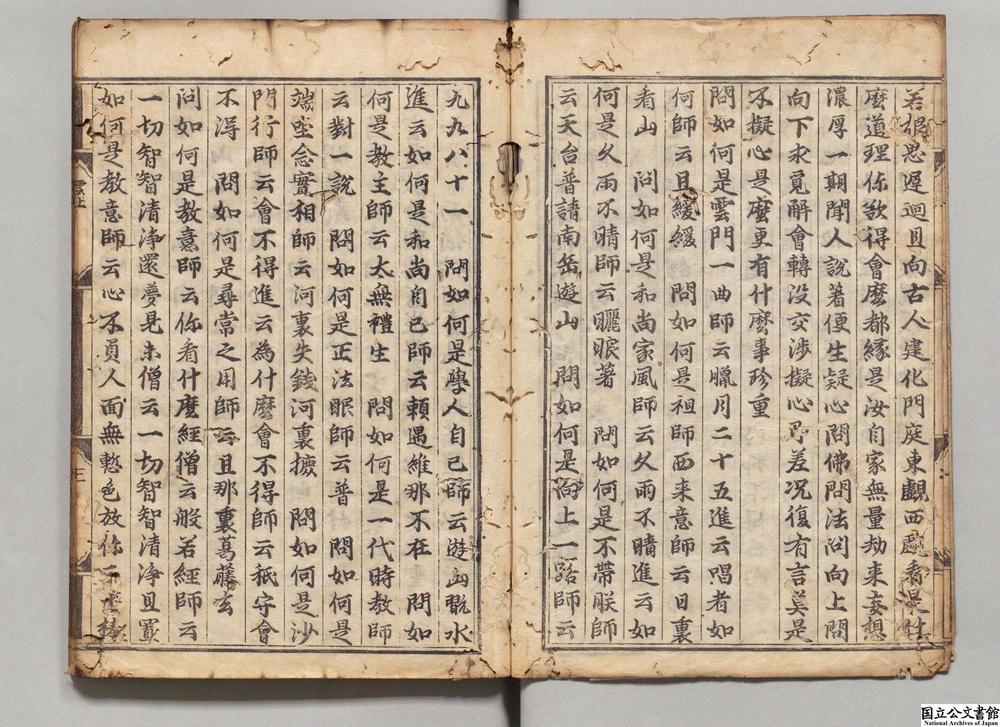 若根思遲迴且向古人建化門庭東覷西覷看是什
麼道理你欲得會麼都緣是汝自家無量劫來妄想
濃厚一期聞人說著便生疑心問佛問法問向上問
向下求覓解會轉沒交涉擬心即差況復有言莫是
不擬心是麼更有什麼事珍重
問如何是雲門一曲師云臘月二十五進云唱者如
何師云且緩緩　問如何是祖師西来意師云日裏
看山　問如何是和尚家風師云久雨不晴進云如
何是久雨不晴師云曬眼著　問如何是不帶朕師
云天台普請南岳遊山　問如何是向上一路師云
九九八十一　問如何是學人自己師云遊山翫水
進云如何是和尚自己師云賴遇維那不在　問如
何是教主師云太無禮生　問如何是一代時教師
云對一說　問如何是正法眼師云普　問如何是
端坐念實相師云河裏失錢河裏摝　問如何是沙
門行師云會不得進云為什麼會不得師云秖守會
不得　問如何是尋常之用師云且那裏葛藤去
問如何是教意師云你看什麼經僧云般若經師云
一切智智清淨還夢見未僧云一切智智清淨且置
如何是教意師云心不負人面無慙色放你三十棒
雲上
十二
国立公文書館
National Archives of Japan